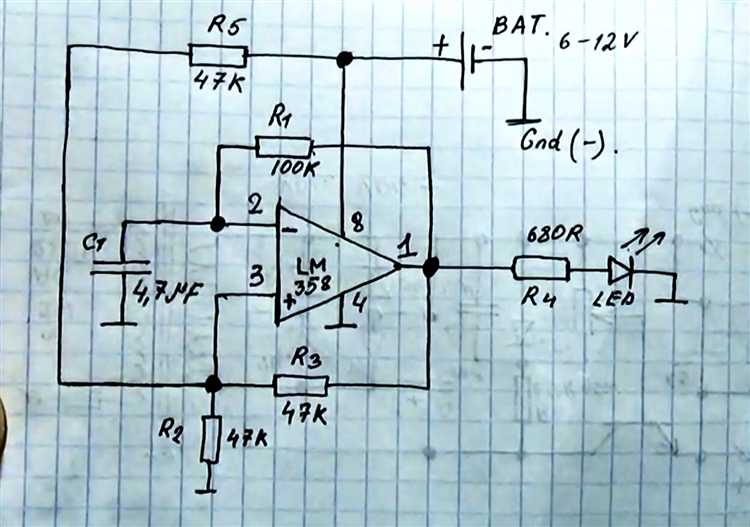 R5
47K
+
-
BAT.
6-12V
Gnd (-).
R1
100K
2
-
8
1
C1
4,7µF
3
+
LM
358
4
680R
R4
LED
R3
47K
R2
47K